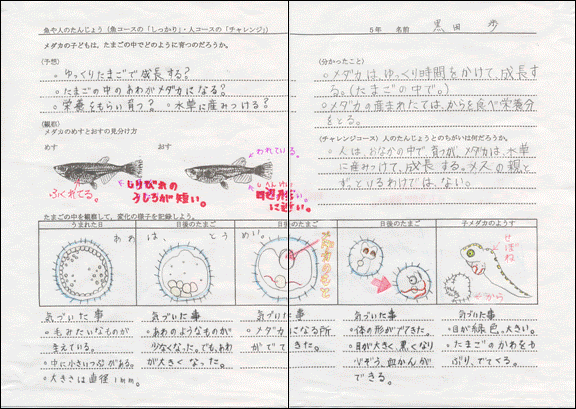 魚や人のたんじょう（魚コースの「しっかり」・人コースの「チャレンジ」）
5年 名前 黒田
メダカの子どもは、たまごの中でどのように育つのだろうか。
(予想)
・ゆっくりたまごで成長する?
・たまごの中のあわがメダカになる?
・栄養をもらい育つ? ・水草に産みつける?
(観察)
メダカのめすとおすの見分け方
めす
おす
われている。
ふくれてる。
しりびれの
うしろが短い。
四辺形
に近い。
(分かったこと)
・メダカは、ゆっくり時間をかけて、成長す
る。(たまごの中で。)
・メダカの産まれたては、からを食べ栄養分
をとる。
(チャレンジコース) 人のたんじょうとのちがいは何だろうか。
・人は、おなかの中で育つが、メダカは、水草
に産みつけて、成長する。メスの親と
ずっといるわけでは、ない。
たまごの中を観察して、変化の様子を記録しよう。
うまれた日
日後のたまご
日後のたまご
日後のたまご
子メダカのようす
あわ
は、
とう
めい。
せぼね
から
気づいた事
・毛みたいなものが
きえている。
・中に小さいつぶがある。
・大きさは直径1mm。
気づいた事
・あわのようなものが
少なくなった。でも、あわ
が大きくなった。
気づいた事
・メダカになる所
がでてきた。
気づいた事
・体の形ができてきた。
・目が大きく、黒くなり
心ぞう、血かんが
できる。
気づいた事
・目が緑色。大きい。
・たまごのかわをや
ぶり、でてくる。